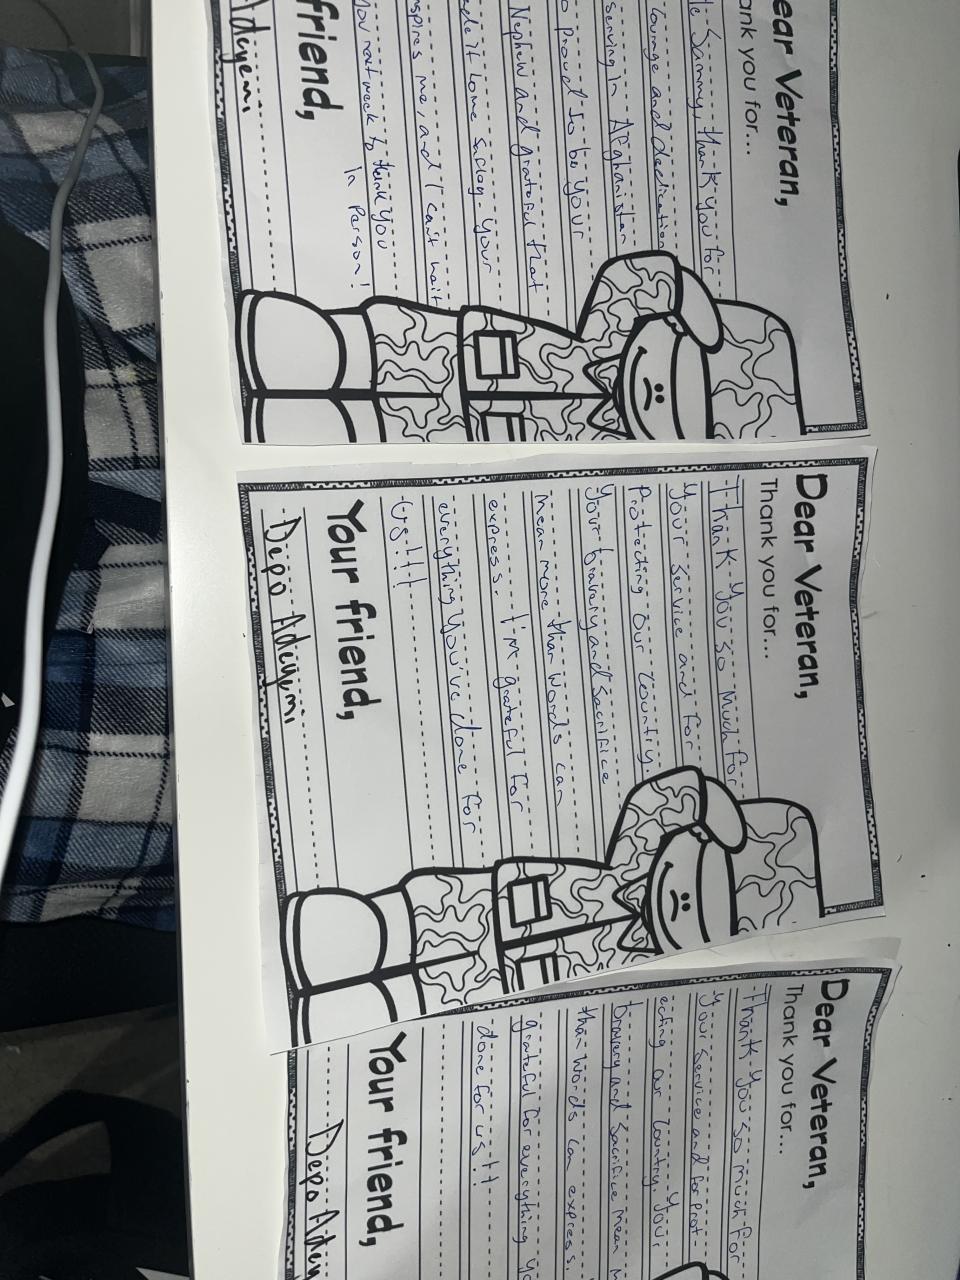 ear Veteran,
ank you for...
le Sammy, thank you for
courage and dedication
serving in Afghanistan
o proud to be your
Nephew and grateful that
ade it home safley. Your
nspires me, and I can't wait
you next week to thank you
in Person!
friend,
Adeyemi
Dear Veteran,
Thank you for...
Thank you so much for
your service and for
Protecting our country.
Your bravery and sacrifice
mean more than words can
express. I'm grateful for
everything you've done for
us!!!
Your friend,
Depo Adeyemi
Dear Veteran,
Thank you for...
Thank you so much for
your service and for prot-
ecting our country. Your
bravery and sacrifice mean m
than words can express.
grateful for everything yo
done for us!!
Your friend,
Depo Adey